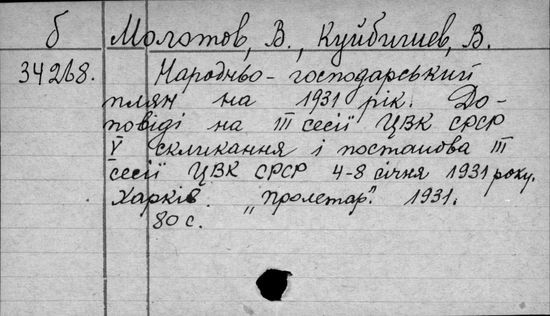 б Молотов, В., Куйбишев, В.
34268. Народньо-господарський
плян на 1931 рік. До-
повіді на III сесії ЦВК СРСР
V скликання і постанова III
сесії ЦВК СРСР 4-8 січня 1931 року.
Харків. „Пролетар". 1931.
80 с.